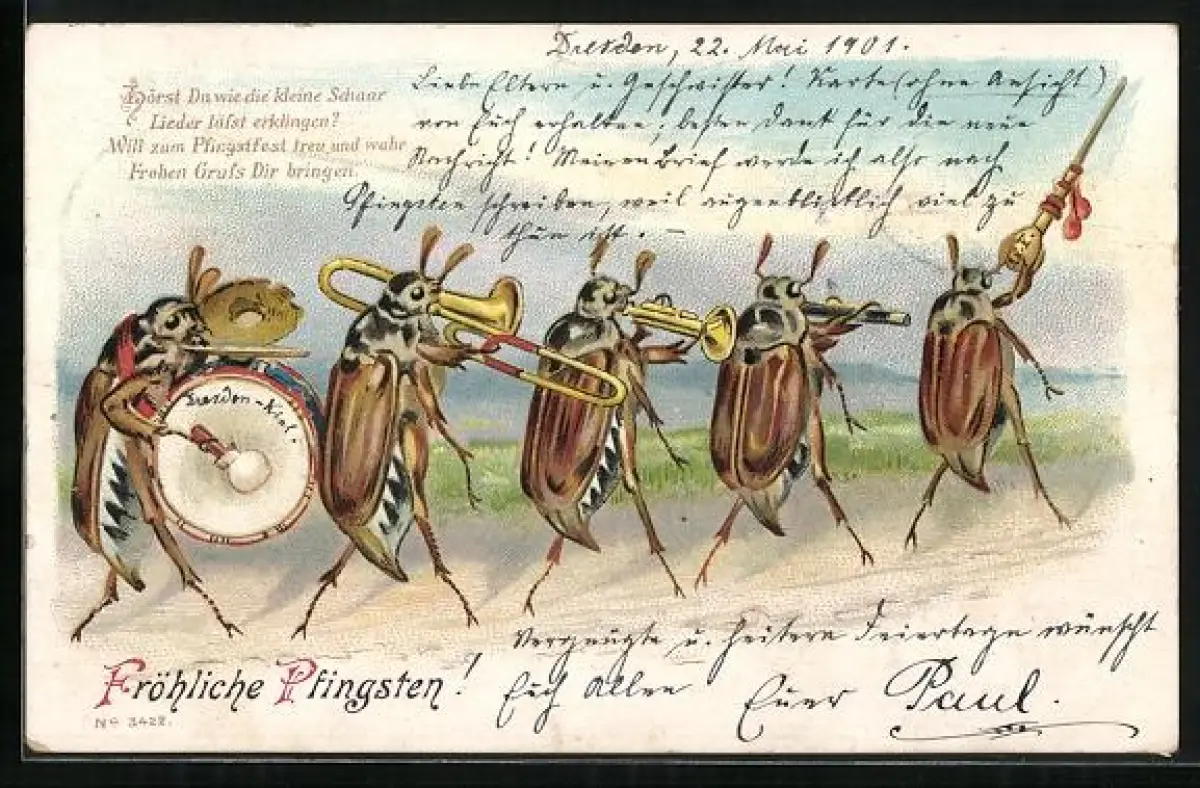 Dresden, 22. Mai 1901.
Hörst Du wie die kleine Schaar
Lieder läſst erklingen?
Will zum Pfingstfest treu und wahr
Frohen Gruſs Dir bringen.
Liebe Eltern u. Geschwister! Karte (ohne Ansicht)
von Euch erhalten; besten Dank für die neue
Nachricht! Meinen Brief werde ich also nach
Pfingsten schreiben, weil augenblicklich viel zu
thun ist. –
Dresden-
Vergnügte u. heitere Feiertage wünscht
Fröhliche Pfingsten! Euch Allen Euer Paul.
No 3422.